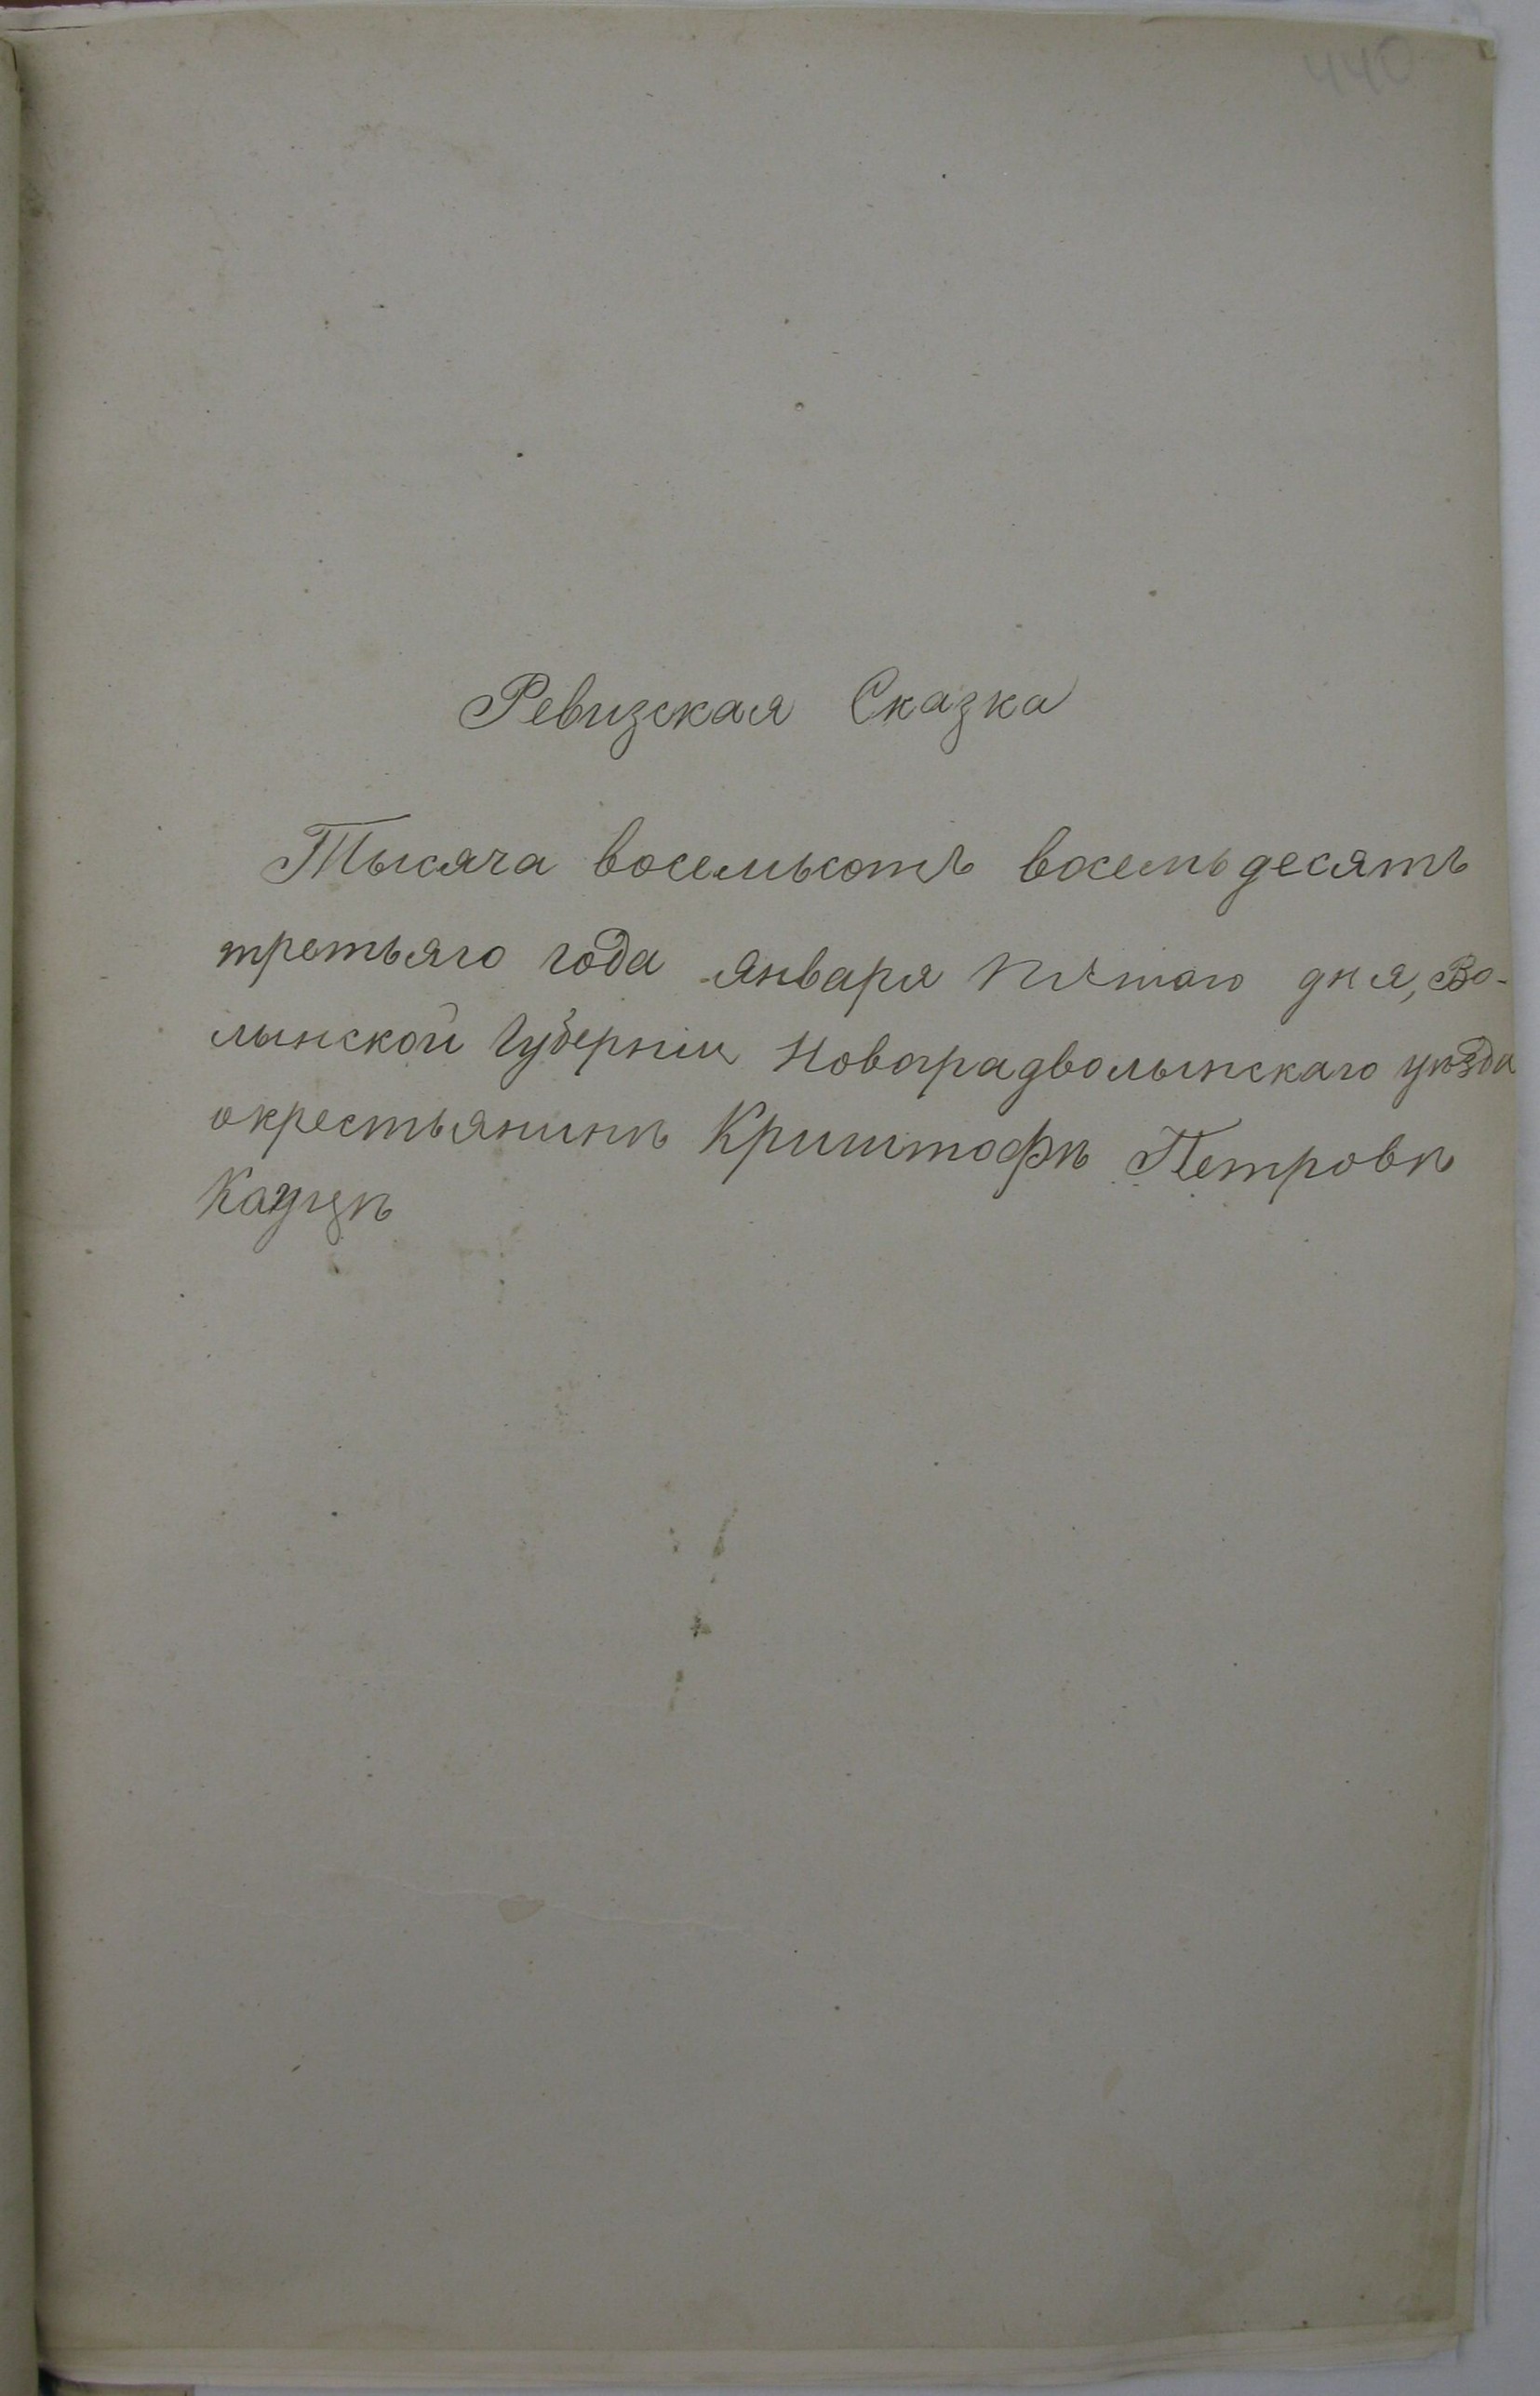 440
Ревизская Сказка
Тысяча восемьсотъ восемьдесятъ
третьяго года Января пятаго дня, Во-
лынской Губерніи Новоградволынскаго уѣзда
окрестьянинѣ Криштофѣ Петровѣ
Кауцѣ